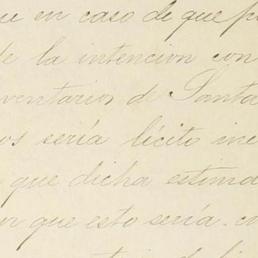 ue en caso de que p
de la intencion con
ventarios de Santa
os sería lícito in
que dicha estima
or que esto sería